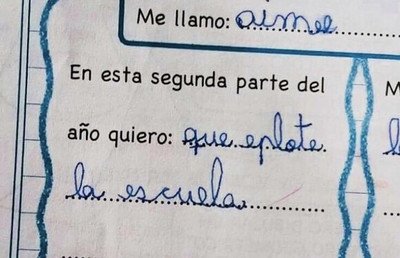 Me llamo: aimee
En esta segunda parte del
año quiero: que eplote
la escuela.